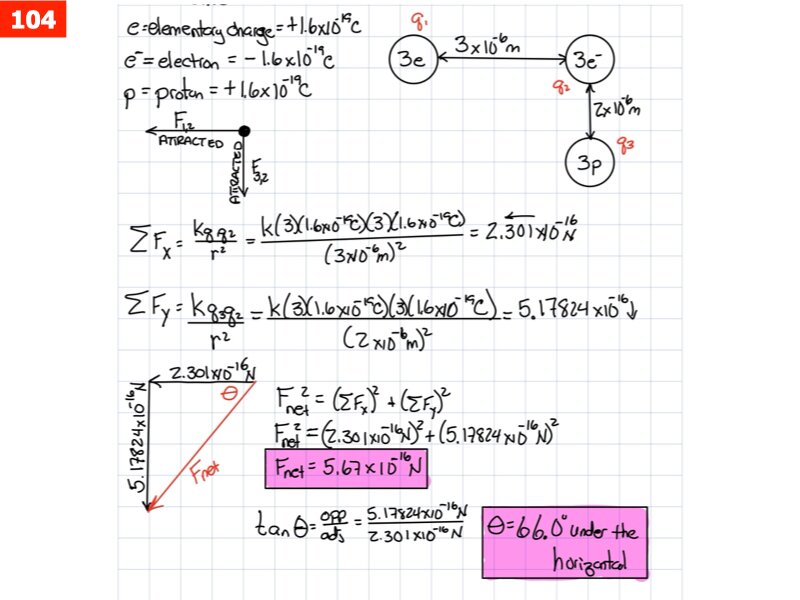 104
e=elementary charge=+1.6x10⁻¹⁹C
e⁻=electron = -1.6x10⁻¹⁹C
p=proton=+1.6x10⁻¹⁹C
q₁
3e
3x10⁻⁶m
3e⁻
q₂
2x10⁻⁶m
q₃
3p
F₁,₂
ATTRACTED
ATTRACTED
F₃,₂
ΣFₓ = kq₁q₂/r² = k(3)(1.6x10⁻¹⁹C)(3)(1.6x10⁻¹⁹C)/(3x10⁻⁶m)² = 2.301x10⁻¹⁶N ←
ΣFy = kq₃q₂/r² = k(3)(1.6x10⁻¹⁹C)(3)(1.6x10⁻¹⁹C)/(2x10⁻⁶m)² = 5.17824x10⁻¹⁶↓
2.301x10⁻¹⁶N
θ
5.17824x10⁻¹⁶N
Fnet
Fnet² = (ΣFₓ)² + (ΣFy)²
Fnet² = (2.301x10⁻¹⁶N)² + (5.17824x10⁻¹⁶N)²
Fnet = 5.67x10⁻¹⁶N
tanθ = opp/adj = 5.17824x10⁻¹⁶N/2.301x10⁻¹⁶N
θ=66.0° under the
horizontal